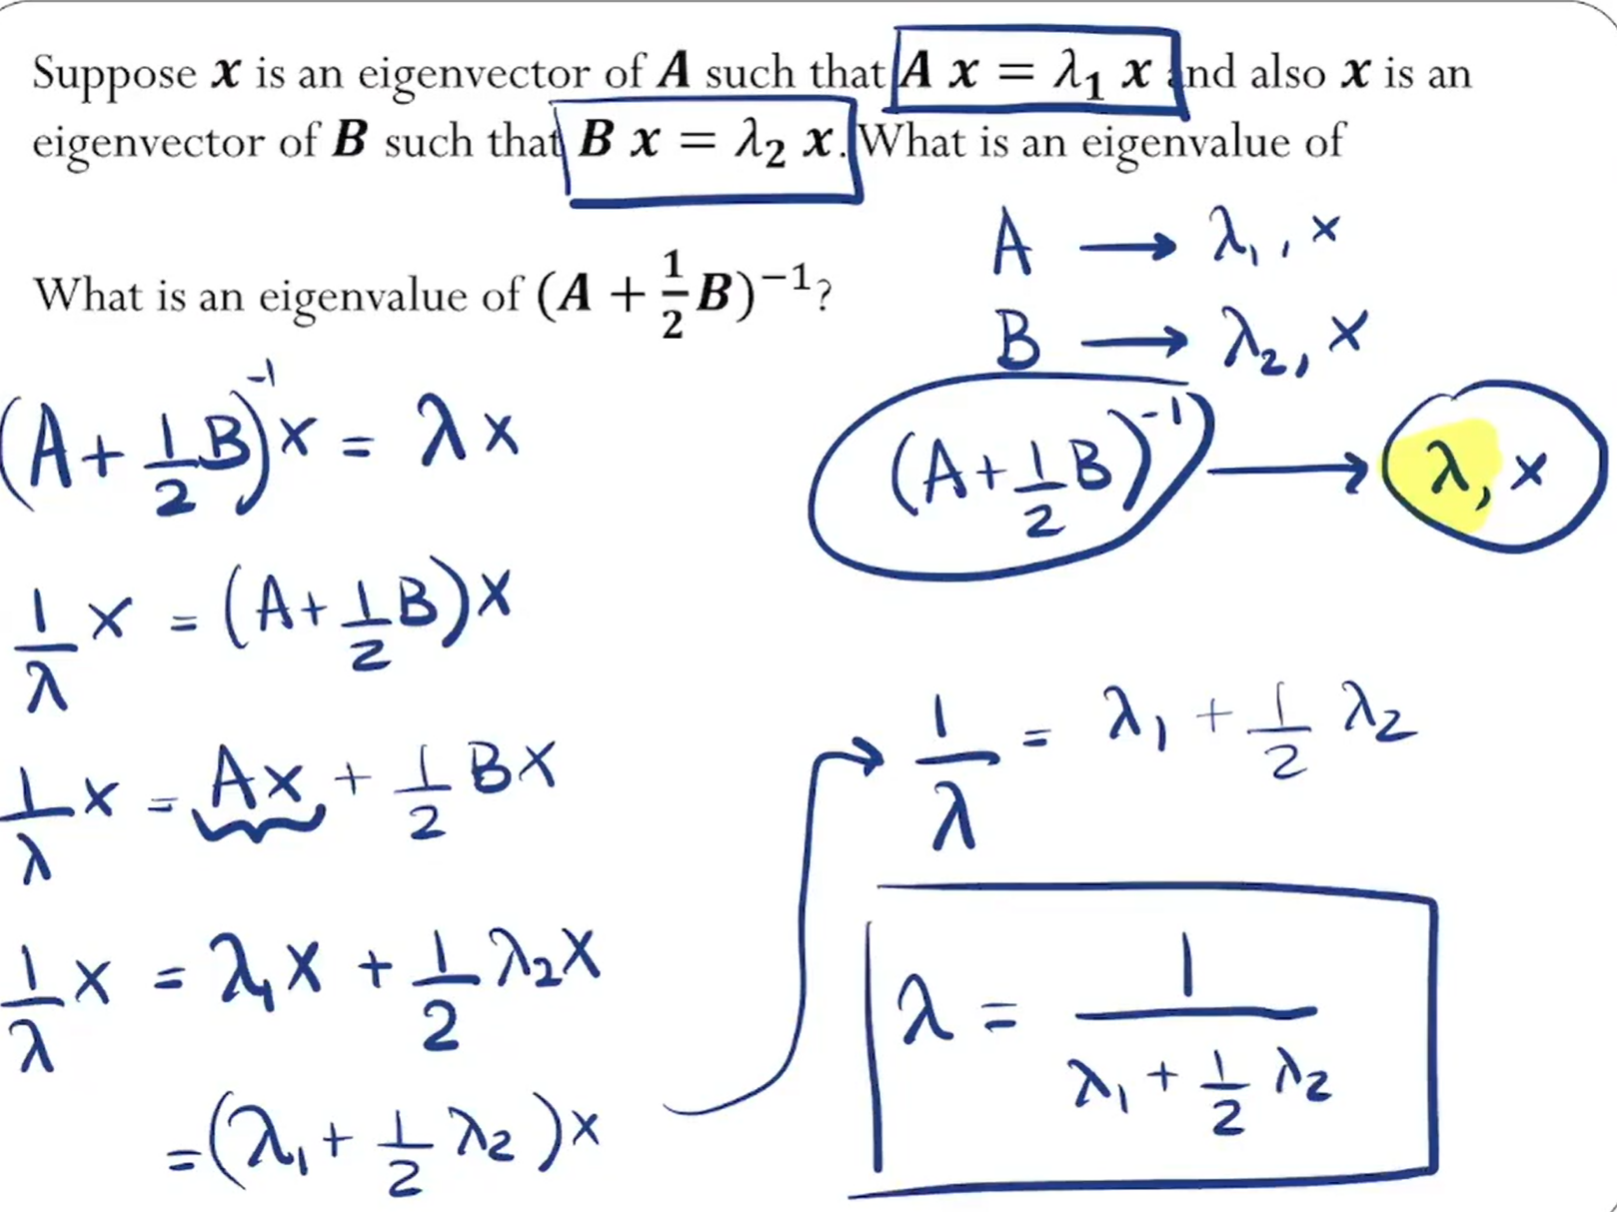 Suppose x is an eigenvector of A such that A x = λ₁ x and also x is an
eigenvector of B such that B x = λ₂ x. What is an eigenvalue of
What is an eigenvalue of (A + 1/2 B)⁻¹?
A → λ₁, x
B → λ₂, x
(A + 1/2 B)⁻¹ → λ, x
(A + 1/2 B)⁻¹ x = λ x
1/λ x = (A + 1/2 B) x
1/λ x = Ax + 1/2 Bx
1/λ x = λ₁x + 1/2 λ₂x
= (λ₁ + 1/2 λ₂) x
1/λ = λ₁ + 1/2 λ₂
λ = 1/(λ₁ + 1/2 λ₂)